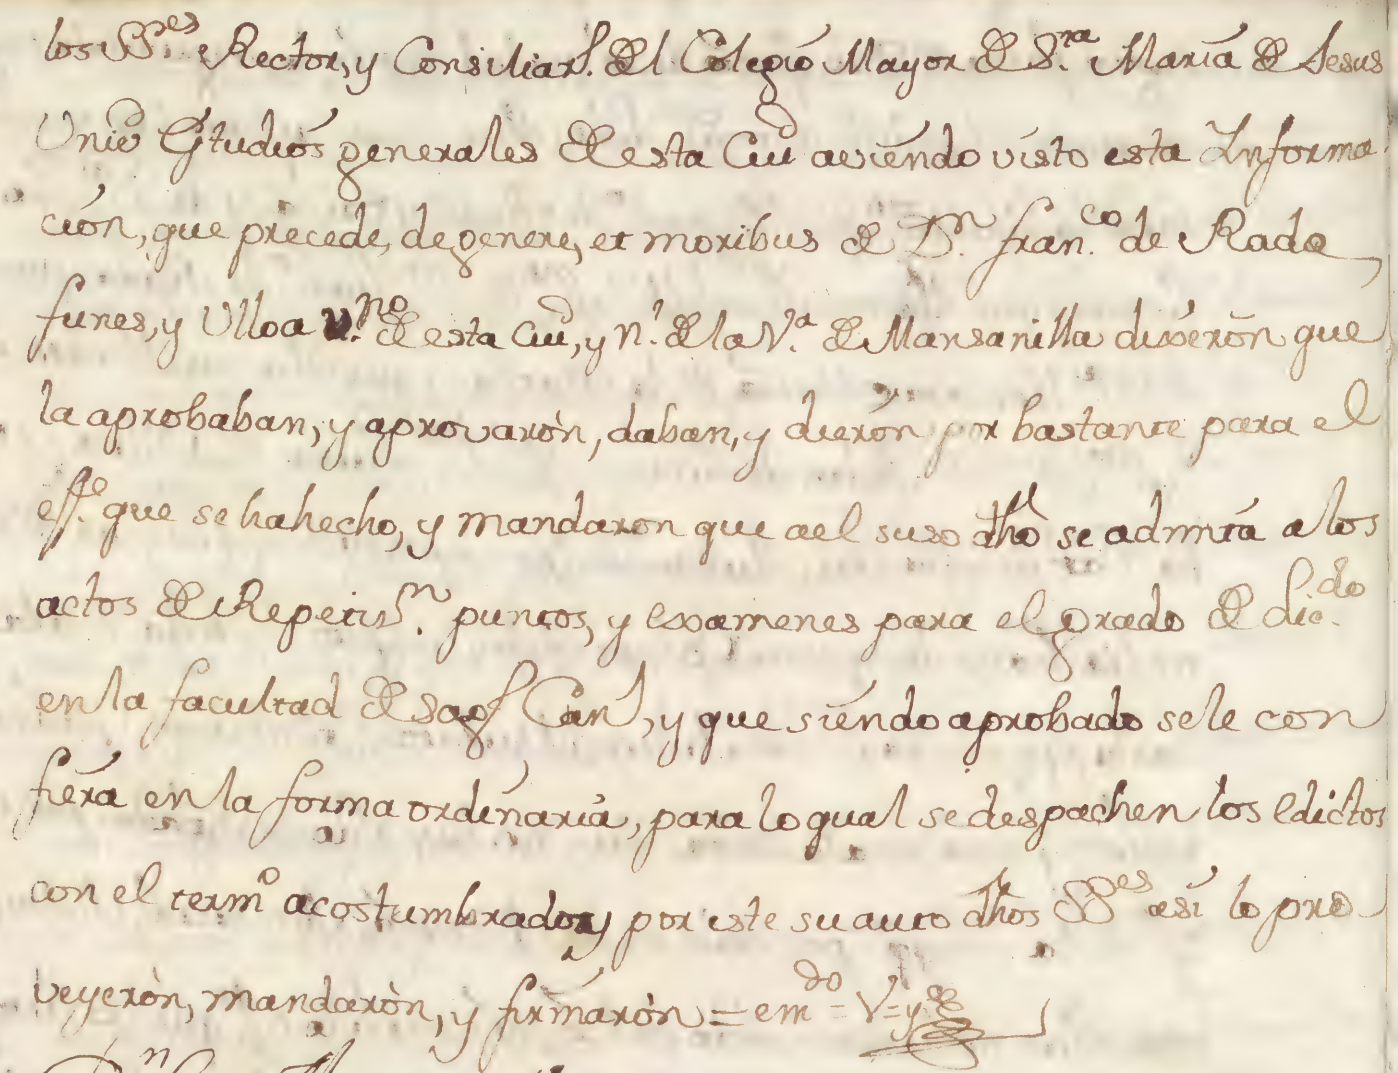 los SS.res Rector, y Consiliars. del Colegio Mayor de S.ra Maria de Jesus
Univ Estudios generales de esta Ciu aviendo visto esta Informa
cion, que precede, de genere, et moribus de D.n fran.co de Rada
funes, y Ulloa v.no de esta Ciu, y n.l de la V.a de Mansanilla dixeron que
la aprobaban, y aprovaron, daban, y dieron por bastante para el
eff.o que se ha hecho, y mandaron que a el suso dho se admita a los
actos de Repetis.n puntos, y examenes para el grado de Lic.do
en la facultad de Sags Cans, y que siendo aprobado se le con
fiera en la forma ordinaria, para lo qual se despachen los edictos
con el termo acostumbrado, y por este su auto dhos SS.es asi lo pro
veyeron, mandaron, y firmaron = em.do = V = y